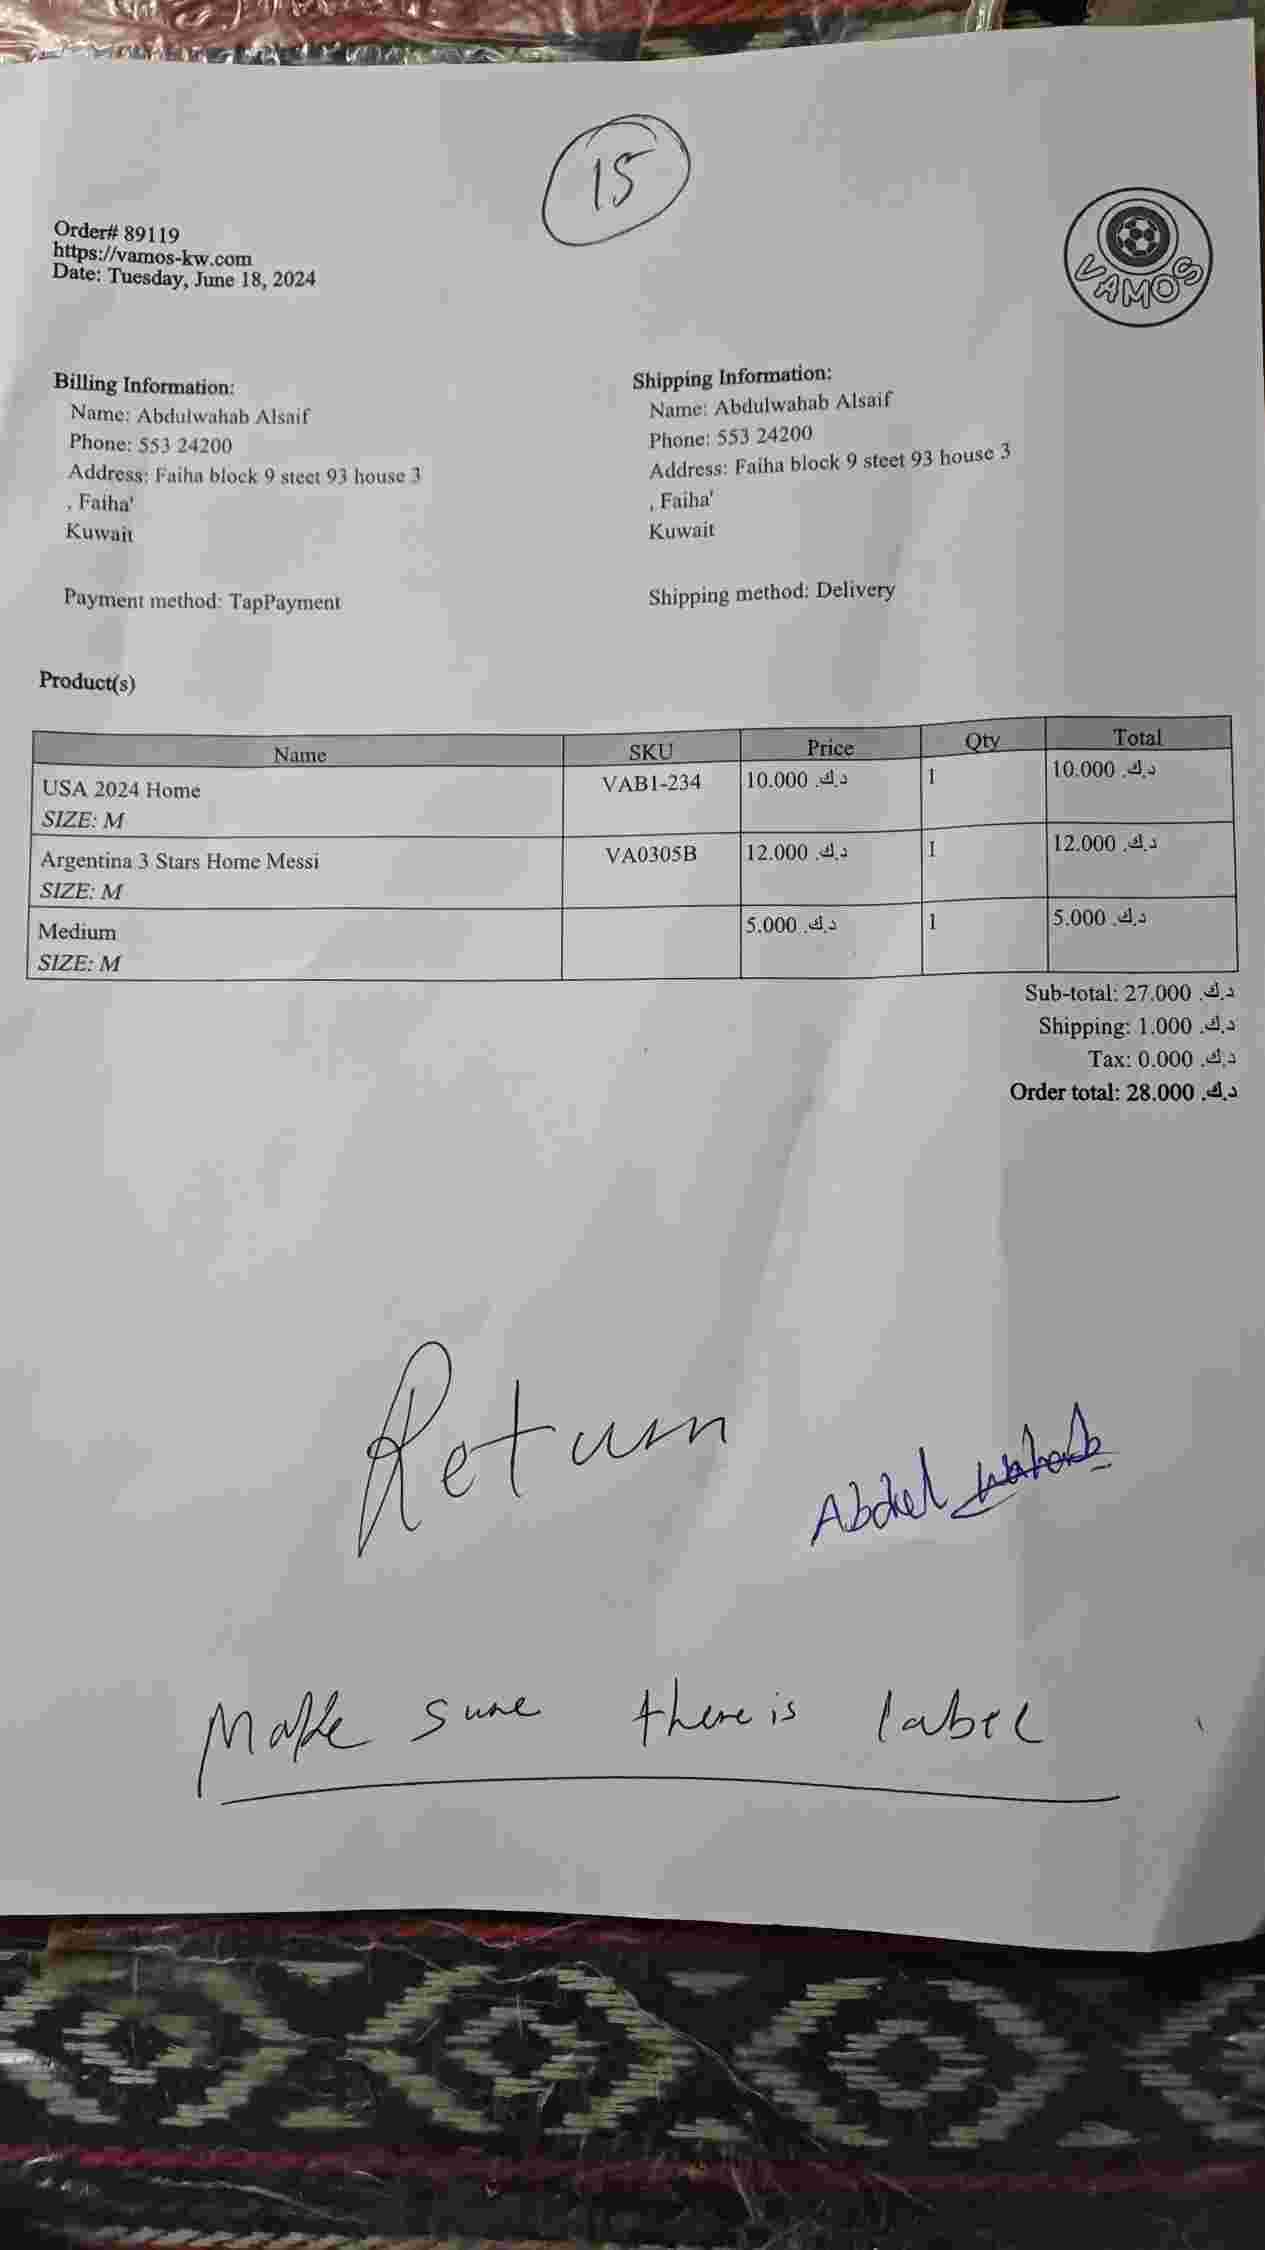 15
Order# 89119
https://vamos-kw.com
Date: Tuesday, June 18, 2024
VAMOS
Billing Information:
Name: Abdulwahab Alsaif
Phone: 553 24200
Address: Faiha block 9 steet 93 house 3
, Faiha'
Kuwait
Payment method: TapPayment
Shipping Information:
Name: Abdulwahab Alsaif
Phone: 553 24200
Address: Faiha block 9 steet 93 house 3
, Faiha'
Kuwait
Shipping method: Delivery
Product(s)
Name SKU Price Qty Total
USA 2024 Home VAB1-234 10.000 د.ك. 1 10.000 د.ك.
SIZE: M
Argentina 3 Stars Home Messi VA0305B 12.000 د.ك. 1 12.000 د.ك.
SIZE: M
Medium 5.000 د.ك. 1 5.000 د.ك.
SIZE: M
Sub-total: 27.000 د.ك.
Shipping: 1.000 د.ك.
Tax: 0.000 د.ك.
Order total: 28.000 د.ك.
Return
Abdul wahab
Make sure there is label